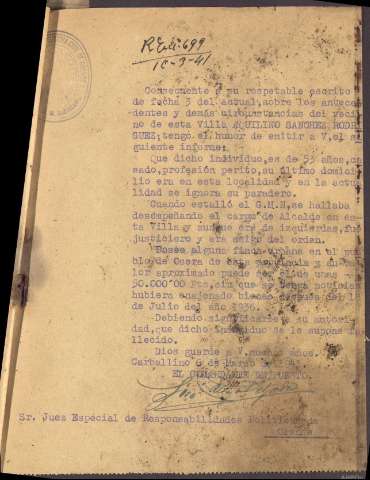 R. Eª: 699
10-3-41
Consecuente a su respetable escrito
de fecha 3 del actual, sobre los antece-
dentes y demás circunstancias del vecino
de esta Villa AQUILINO SANCHEZ RODRI
GUEZ; tengo el honor de emitir a V, el si
guiente informe:
Que dicho individuo, es de 53 años, ca
sado, profesión perito, su último domici-
lio era en esta localidad y en la actua
lidad se ignora su paradero.
Cuando estalló el G.M.N, se hallaba
desempeñando el cargo de Alcalde en es
ta Villa y aunque era de izquierdas, fué
justiciero y era amigo del orden.
Posee alguna finca urbana en el pue
blo de Osera de esta provincia y su va-
lor aproximado puede ser el de unas
50.000'00 Pts, sin que se tenga noticias
hubiera enajenado bienes después del 18
de Julio del año 1936.
Debiendo significarle a su autori-
dad, que dicho individuo se le supone fa
llecido.
Dios guarde a V. muchos años.
Carballino 6 de Marzo de
EL COMANDANTE DEL PUESTO,
Sr. Juez Especial de Responsabilidades Políticas de